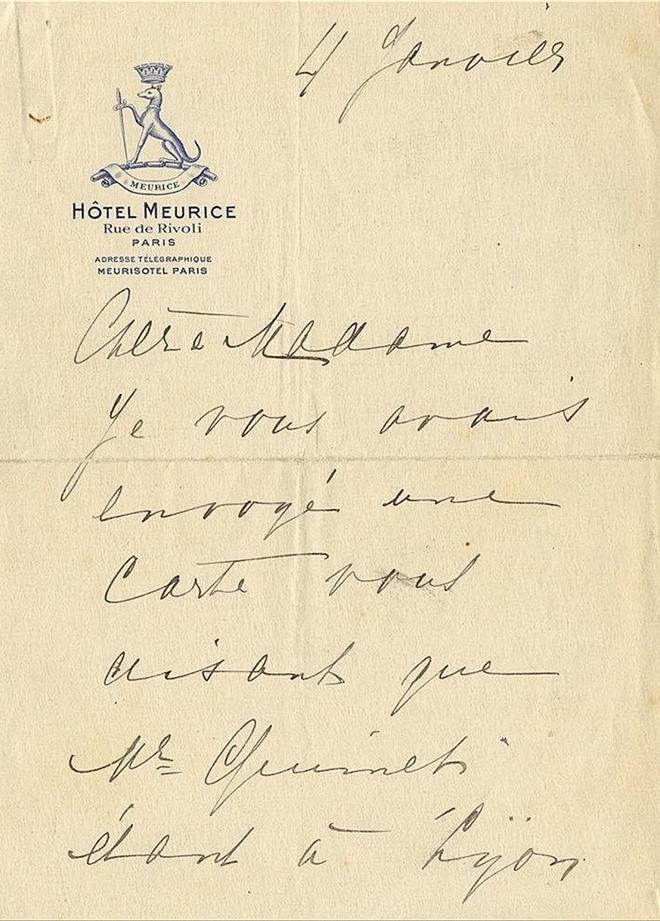 4 Janvier
MEURICE
HÔTEL MEURICE
Rue de Rivoli
PARIS
ADRESSE TÉLÉGRAPHIQUE
MEURISOTEL PARIS
Chère Madame
Je vous avais
envoyé une
Carte vous
disant que
Mr Guimet
étant à Lyon